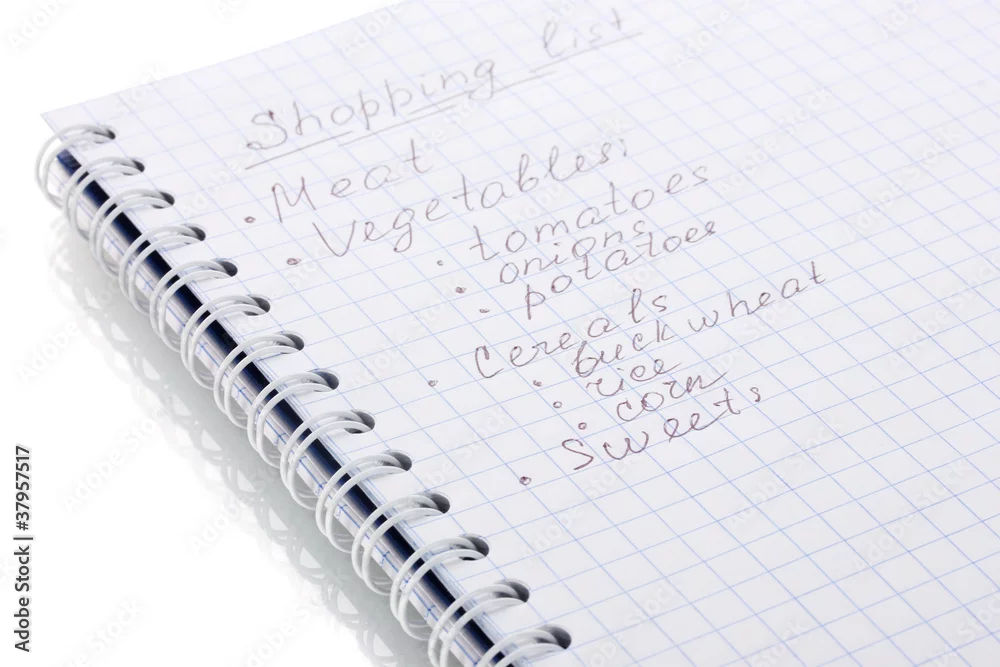 Shopping list
• Meat
• Vegetables:
• tomatoes
• onions
• potatoes
• Cereals
• buckwheat
• rice
• corn
• Sweets
Adobe Stock | #37957517